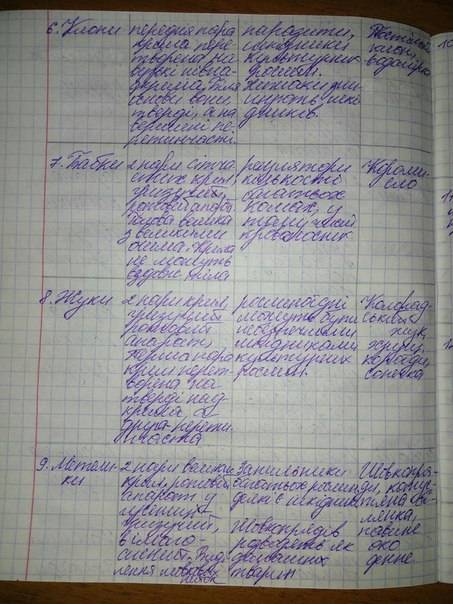 6. Клопи
передня пара
крила пере
творена на
основи вони
тверді, а на
вершині пе-
ретинчасті.
паразити,
шкідники
культурних
рослин.
Хижаки зни
щують шкі
дників.
Постільний
клоп,
водомірка
7. Бабки
2 пари сітча
стих крил
гризучий
ротовий апарат
голова велика
з великими
очима. Крила
не можуть
вздовж тіла
регулятори
кількості
багатьох
комах, у
тому числі
кровосисних
Коромы
сло
8. Жуки
2 пари крил,
гризучий
ротовий
апарат,
перша пара
крил перет
ворена на
тверді над
крила, а
друга - перети
нчаста
рослиноїдні
можуть бути
небезпечними
шкідниками
культурних
рослин.
Колорад
ський
жук,
хрущ,
сонечка
9. Метели-
ки
2 пари великих
крил, ротовий
апарат у
гусениці
гризучий,
в імаго-
сисний. Виді
лення шовкових
ниток
Запильники
багатьох рослин,
деякі є шкідниками
Шовкопрядів
розводять як
домашніх
тварин
Шовкопря-
ди, капус
тяна бі
лянка,
павине
око
денне